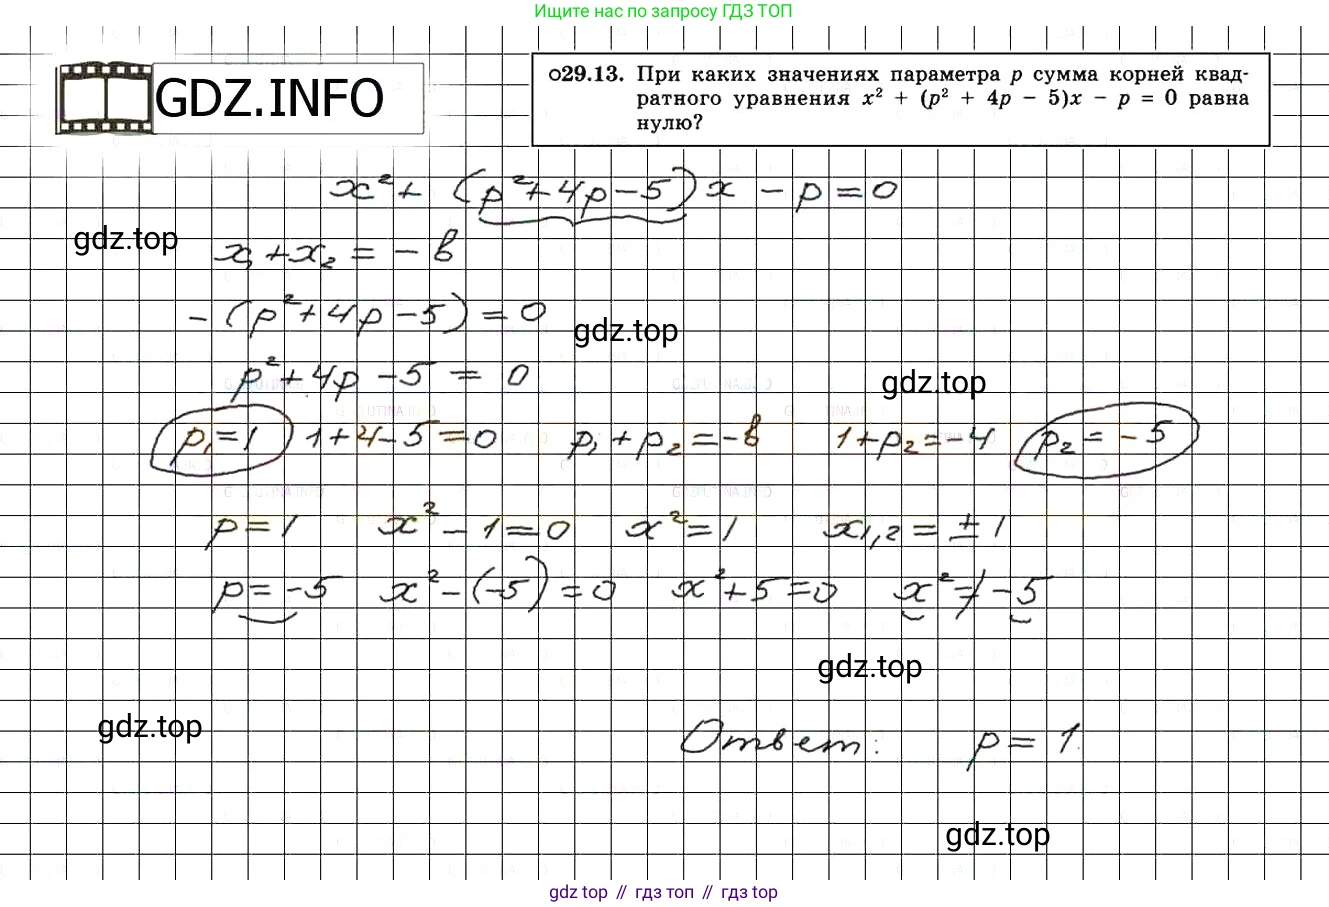 Ищите нас по запросу ГДЗ ТОП
GDZ.INFO
29.13. При каких значениях параметра p сумма корней квад-
ратного уравнения x² + (p² + 4p − 5)x − p = 0 равна
нулю?
x² + (p² + 4p − 5) x − p = 0
gdz.top
x₁ + x₂ = − b
− (p² + 4p − 5) = 0
gdz.top
p² + 4p − 5 = 0
gdz.top
p₁ = 1 1 + 4 − 5 = 0 p₁ + p₂ = − b 1 + p₂ = − 4 p₂ = − 5
p = 1 x² − 1 = 0 x² = 1 x1,2 = ± 1
p = −5 x² − (−5) = 0 x² + 5 = 0 x² ≠ − 5
gdz.top
gdz.top
Ответ: p = 1.
gdz.top
gdz top // гдз топ // гдз top